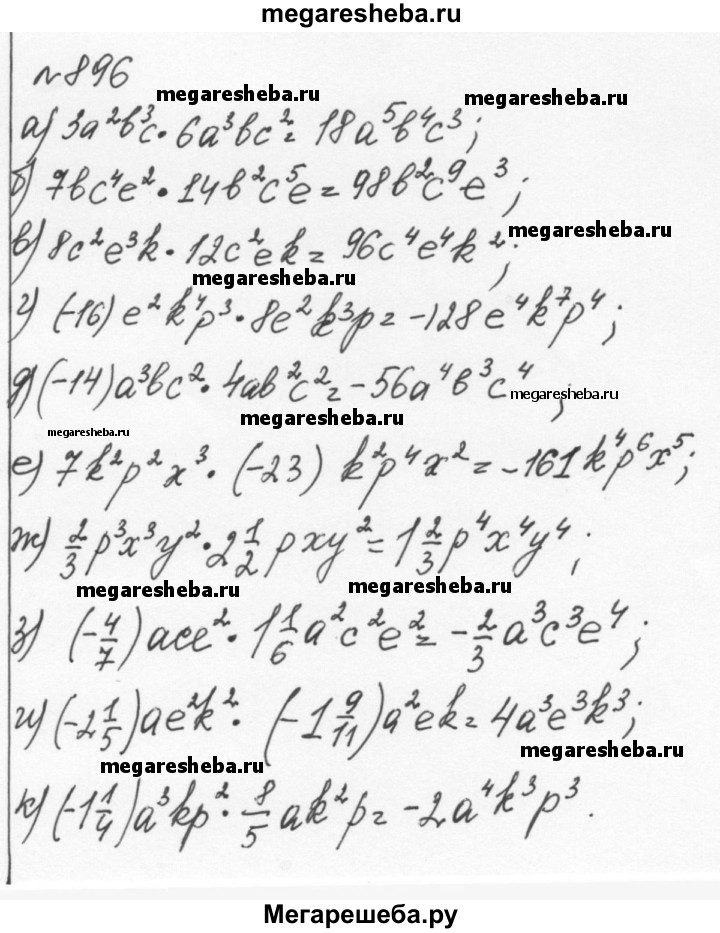 megaresheba.ru
№896
megaresheba.ru
megaresheba.ru
а) 3a²b³c · 6a³bc² = 18a⁵b⁴c³;
б) 7bc⁴e² · 14b²c⁵e = 98b²c⁹e³;
megaresheba.ru
в) 8c²e³k · 12c²ek = 96c⁴e⁴k²;
megaresheba.ru
г) (-16)e²k⁴p³ · 8e²k³p = -128e⁴k⁷p⁴;
д) (-14)a³bc² · 4ab²c² = -56a⁴b³c⁴;
megaresheba.ru
megaresheba.ru
megaresheba.ru
е) 7k²p²x³ · (-23) k²p⁴x² = -161k⁴p⁶x⁵;
ж) 2/3 p³x³y² · 2 1/2 pxy² = 1 2/3 p⁴x⁴y⁴;
megaresheba.ru
megaresheba.ru
з) (-4/7) ace² · 1 1/6 a²c²e² = -2/3 a³c³e⁴;
и) (-2 1/5) ae²k² · (-1 9/11) a²ek = 4a³e³k³;
megaresheba.ru
megaresheba.ru
к) (-1 1/4) a³kp² · 8/5 ak²p = -2a⁴k³p³.
Мегарешеба.ру